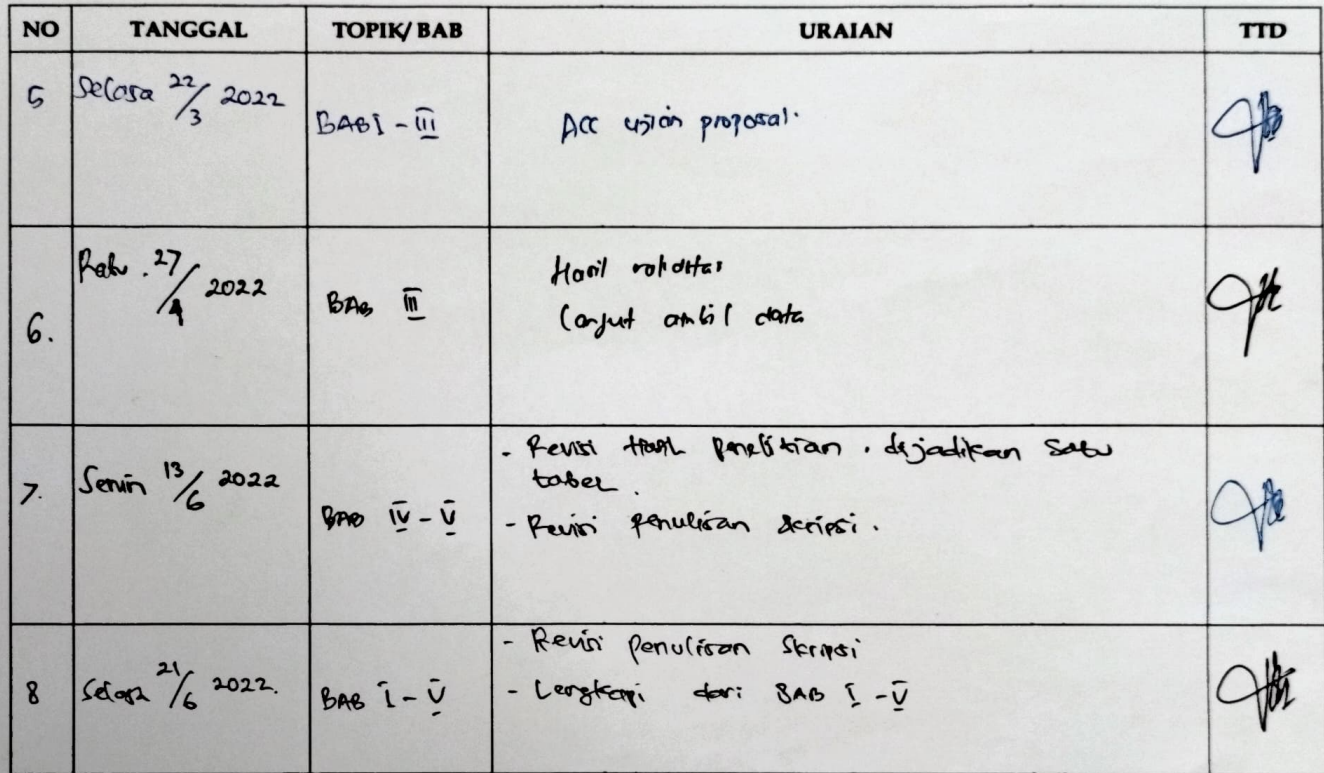 NO TANGGAL TOPIK/BAB URAIAN TTD
5 Selasa 22/3 2022 BAB I - III Acc ujian proposal.
6. Rabu. 27/4 2022 BAB III Hasil validitas
Lanjut ambil data
7. Senin 13/6 2022 BAB IV - V - Revisi Hasil Penelitian. dijadikan satu
tabel.
- Revisi penulisan skripsi.
8 Selasa 21/6 2022. BAB I - V - Revisi penulisan skripsi
- Lengkapi dari BAB I - V